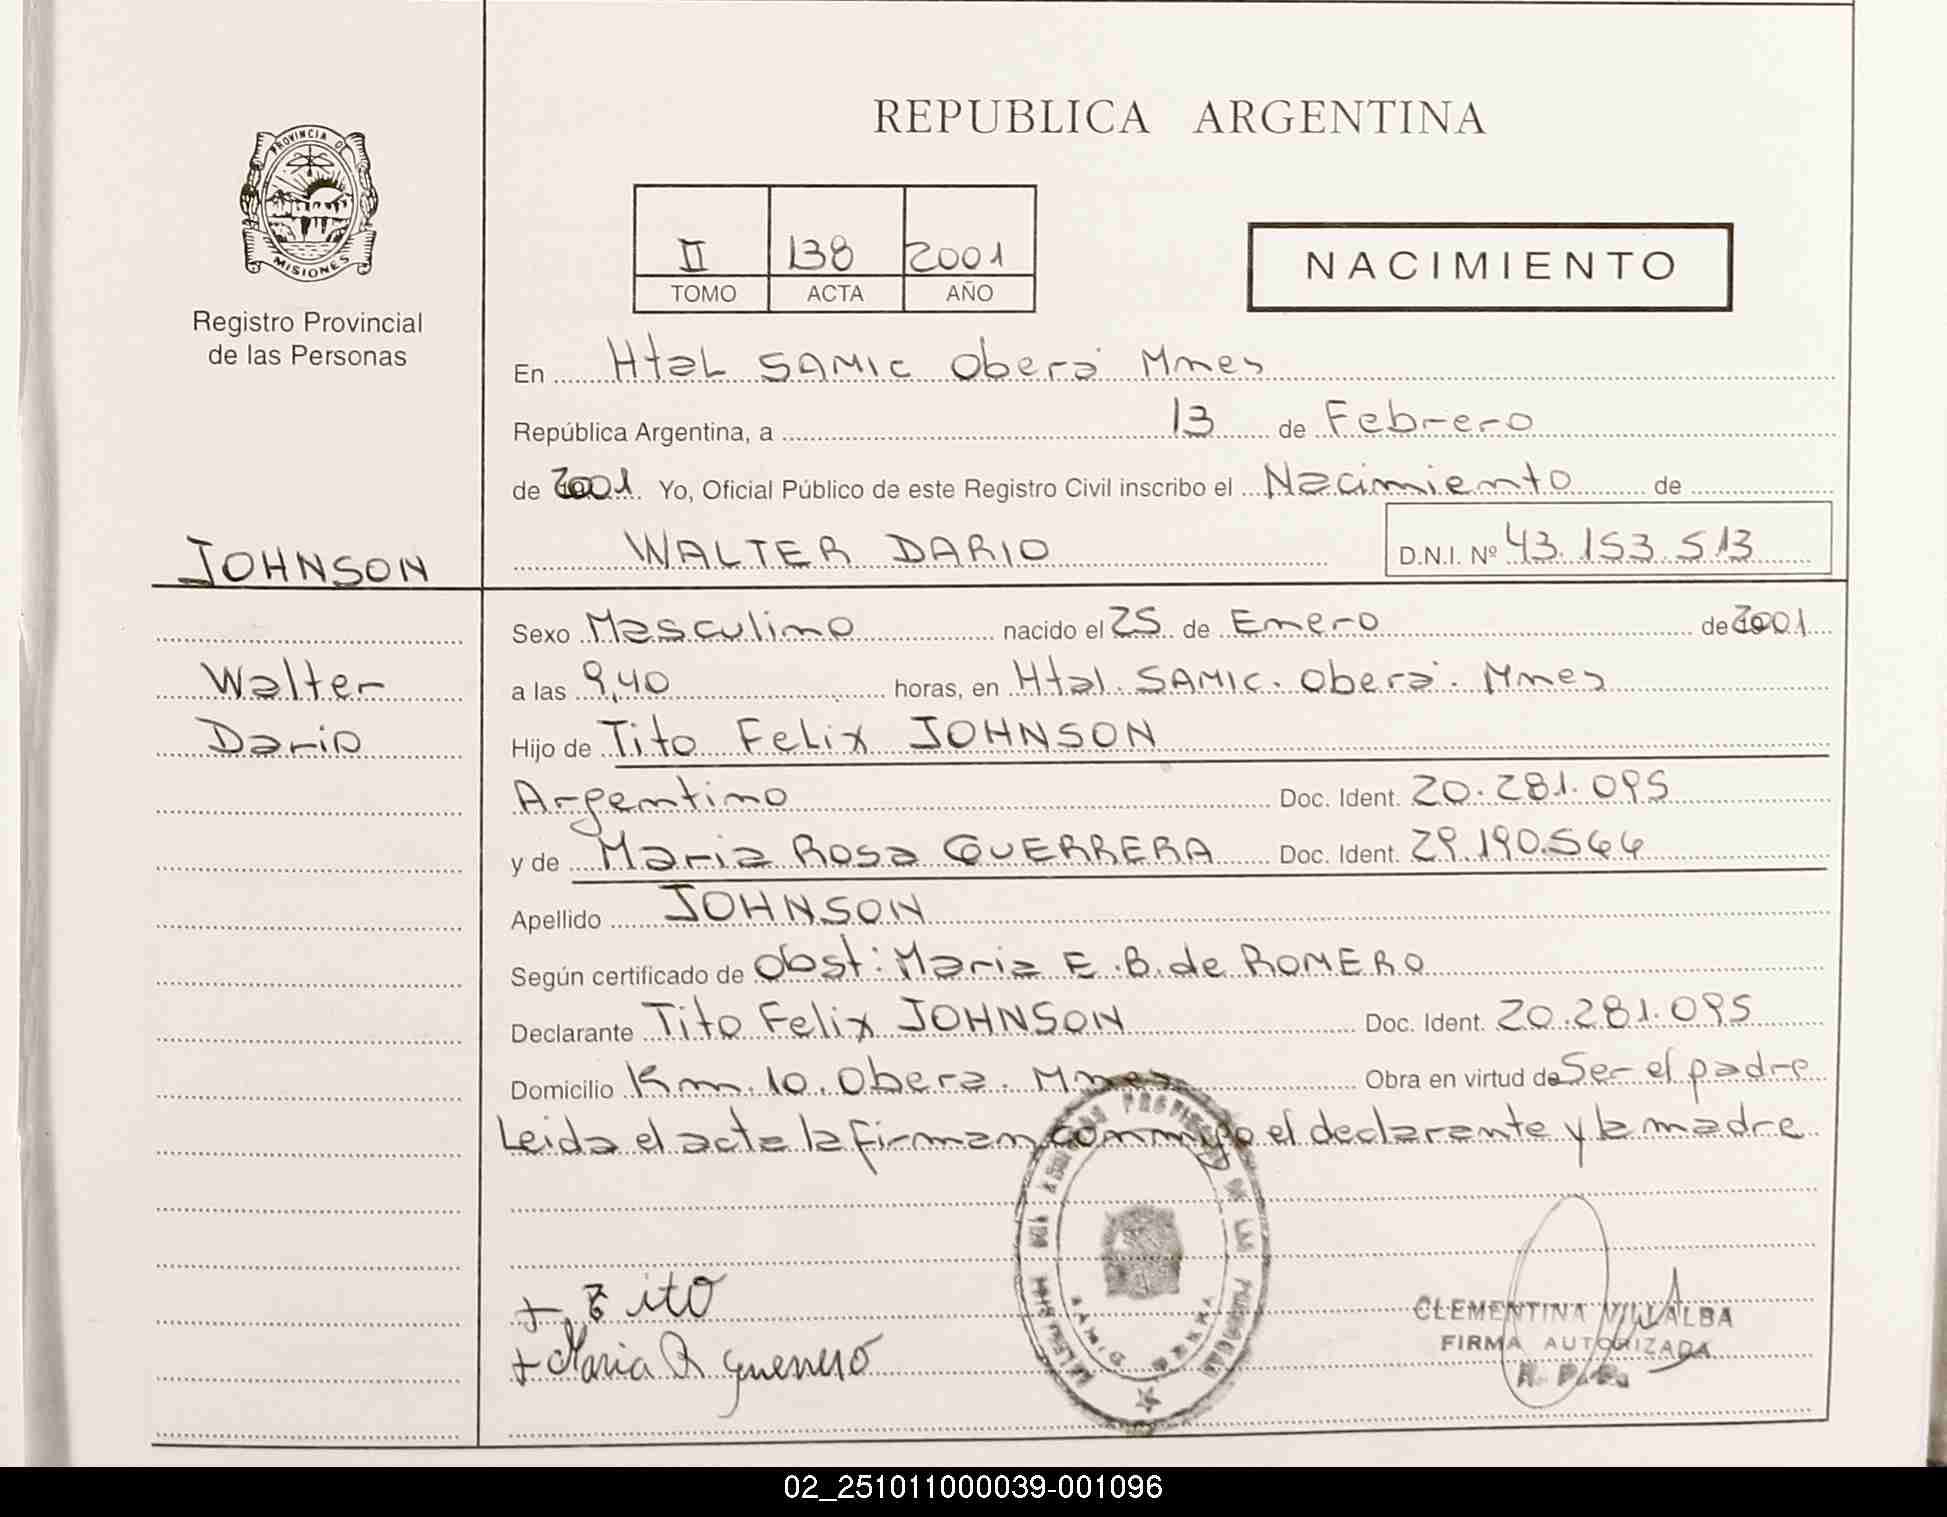 REPUBLICA ARGENTINA
PROVINCIA DE
MISIONES
Registro Provincial
de las Personas
II 138 2001
TOMO ACTA AÑO
NACIMIENTO
En Htal SAMIC Oberá Mnes
República Argentina, a 13 de Febrero
de 2001 Yo, Oficial Público de este Registro Civil inscribo el Nacimiento de
JOHNSON
WALTER DARIO D.N.I. Nº 43.153.513
Sexo Masculino nacido el 25 de Enero de 2001
Walter
a las 9,40 horas, en Htal. SAMIC. Oberá. Mnes
Dario
Hijo de Tito Felix JOHNSON
Argentino Doc. Ident. 20.281.095
y de Maria Rosa GUERRERA Doc. Ident. 29.190.544
Apellido JOHNSON
Según certificado de Obst: Maria E.B. de ROMERO
Declarante Tito Felix JOHNSON Doc. Ident. 20.281.095
Domicilio Km. 10. Obera. Mnes Obra en virtud de Ser el padre
Leida el acta la firman conmigo el declarante y la madre
+ Tito
+ Maria R guerrero
CLEMENTINA VILLALBA
FIRMA AUTORIZADA
02_251011000039-001096